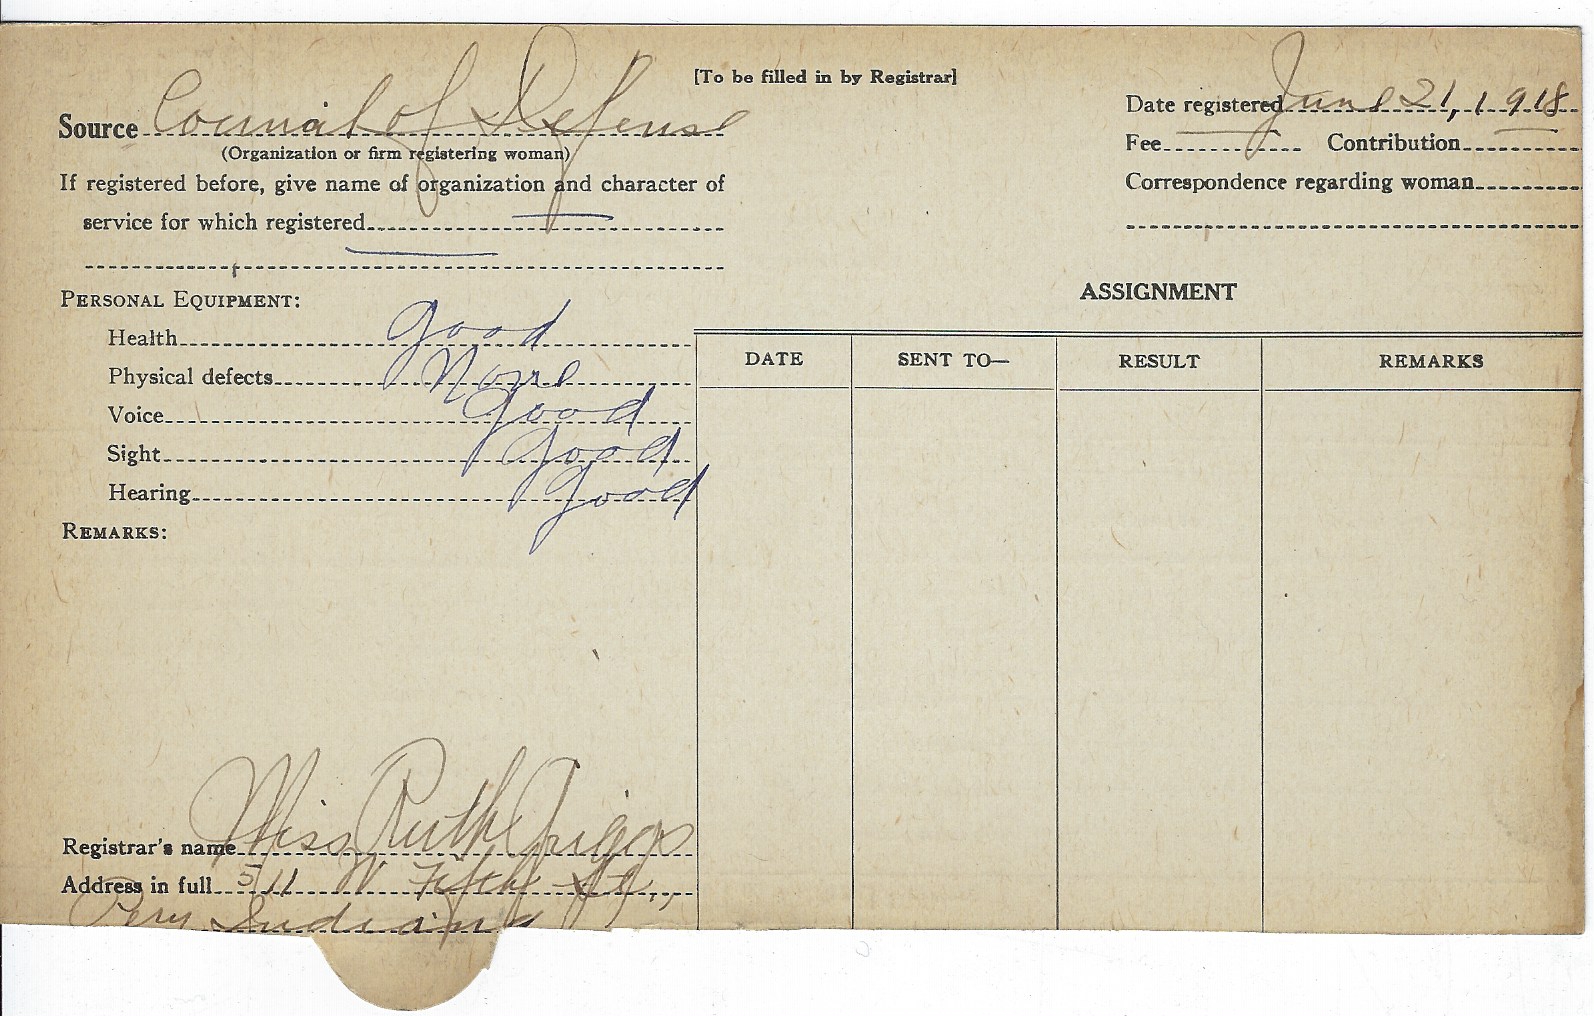 [To be filled in by Registrar]
Source Council of Defense
(Organization or firm registering woman)
If registered before, give name of organization and character of
service for which registered
Date registered June 21, 1918
Fee Contribution
Correspondence regarding woman
PERSONAL EQUIPMENT:
Health good
Physical defects None
Voice good
Sight good
Hearing good
REMARKS:
ASSIGNMENT
DATE SENT TO— RESULT REMARKS
Registrar's name Miss Ruth Griggs
Address in full 511 W Fifth St.,
Peru Indiana